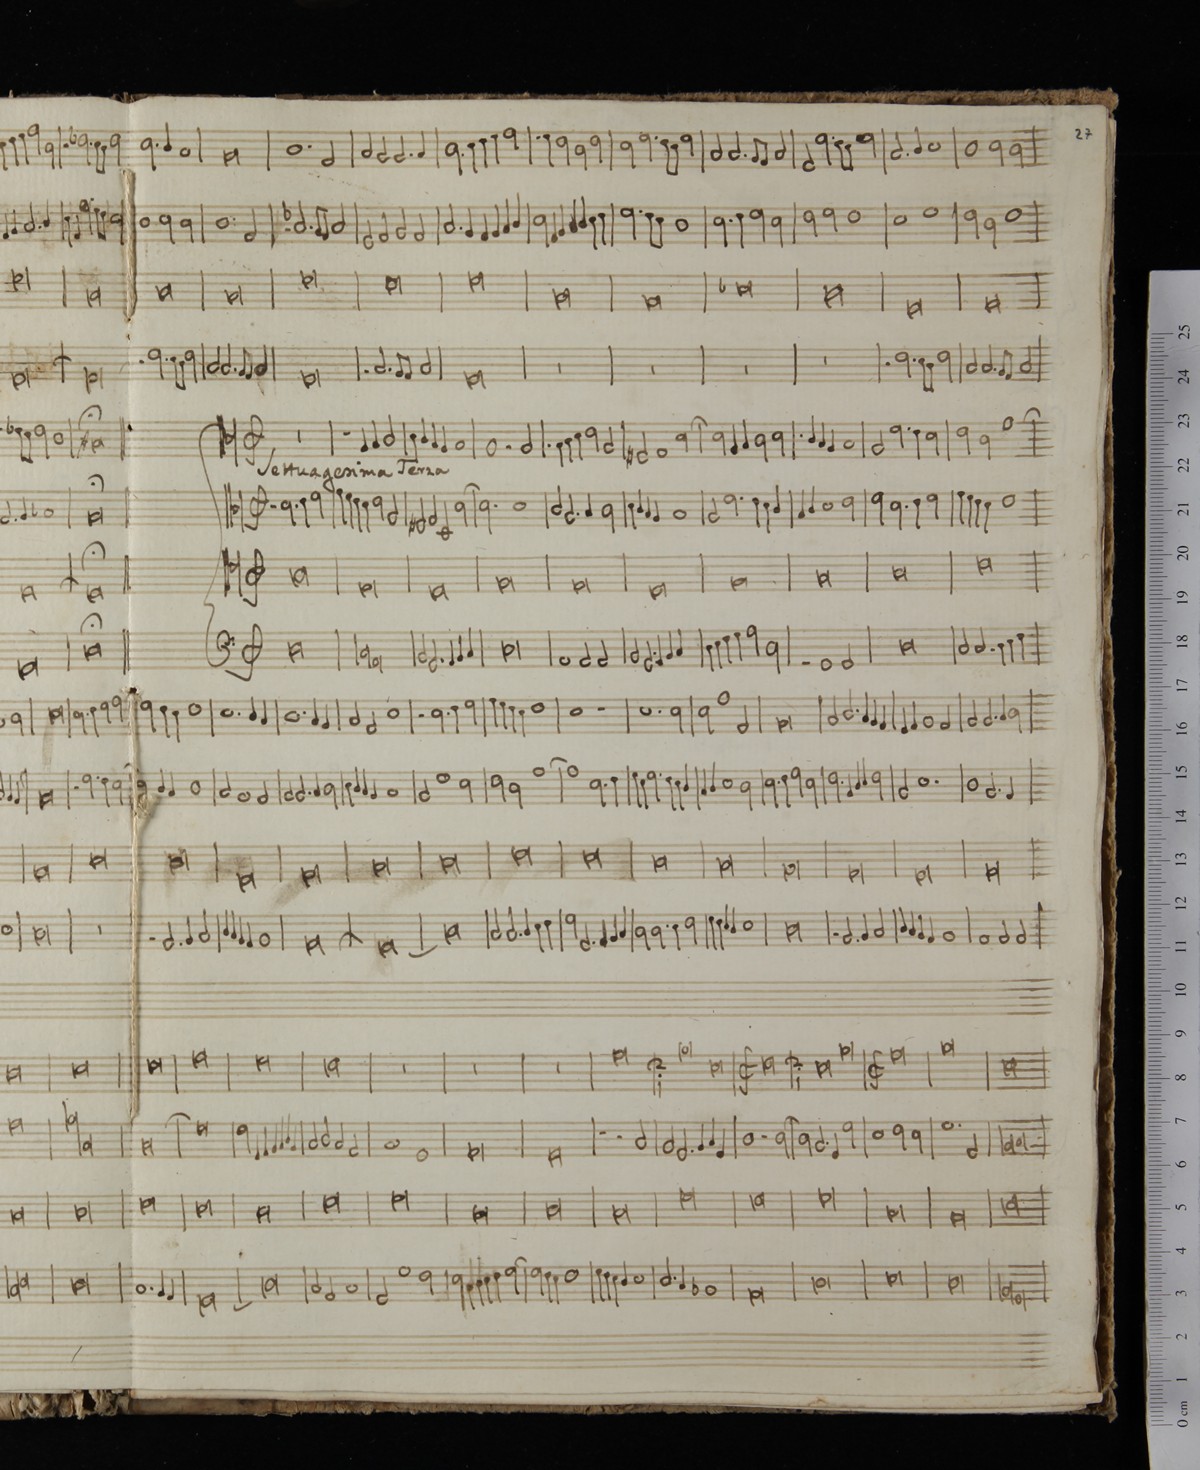 27
Settuagesima Terza
25
24
23
22
21
20
19
18
17
16
15
14
13
12
11
10
9
8
7
6
5
4
3
2
1
0 cm